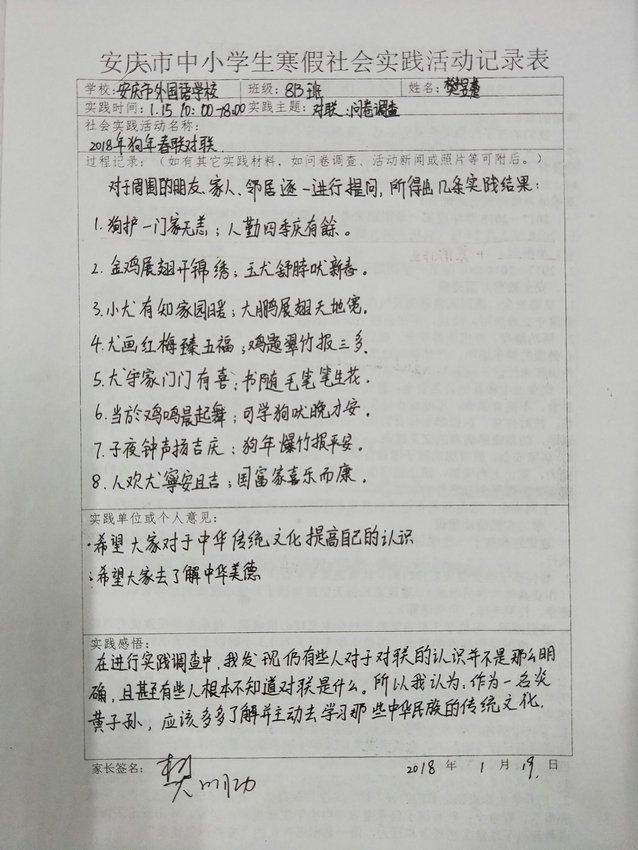 安庆市中小学生寒假社会实践活动记录表
学校：安庆市外国语学校 班级：813班 姓名：樊昱
实践时间：1.15 10：00-18：00 实践主题：对联、问卷调查
社会实践活动名称：
2018年狗年春联对联
过程记录：（如有其它实践材料，如问卷调查、活动新闻或照片等可附后。）
对于周围的朋友、家人、邻居逐一进行提问，所得出几条实践结果：
1.狗护一门家无恙；人勤四季庆有餘。
2.金鸡展翅开锦绣；玉犬舒蹄吠新春。
3.小犬有知家园暖；大鹏展翅天地宽。
4.犬画红梅臻五福；鸡题翠竹报三多.
5.犬守家门门有喜；书随毛笔笔生花.
6.当於鸡鸣晨起舞；可学狗吠晚才安。
7.子夜钟声扬吉庆；狗年爆竹报平安。
8.人欢犬寧安且吉；国富家喜乐而康。
实践单位或个人意见：
·希望大家对于中华传统文化提高自己的认识
·希望大家去了解中华美德
实践感悟：
在进行实践调查中，我发现仍有些人对于对联的认识并不是那么明
确，且甚至有些人根本不知道对联是什么。所以我认为：作为一名炎
黄子孙，应该多多了解并主动去学习那些中华民族的传统文化.
家长签名：樊 2018 年 1 月 19 日